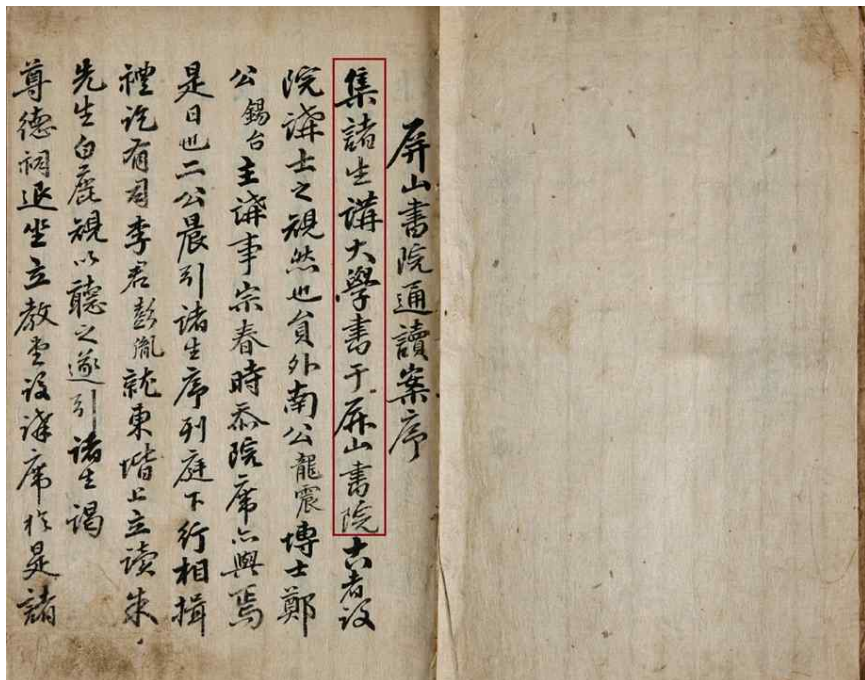 屏山書院通讀案序
集諸生講大學書于屏山書院古者設
院講士之規然也員外南公龍震博士鄭
公錫台主講事宗春時忝院席亦與焉
是日也二公晨引諸生序列庭下行相揖
禮訖有司李君彭胤就東階上立讀朱
先生白鹿規以聽之遂引諸生謁
尊德祠退坐立教堂設講席於是諸